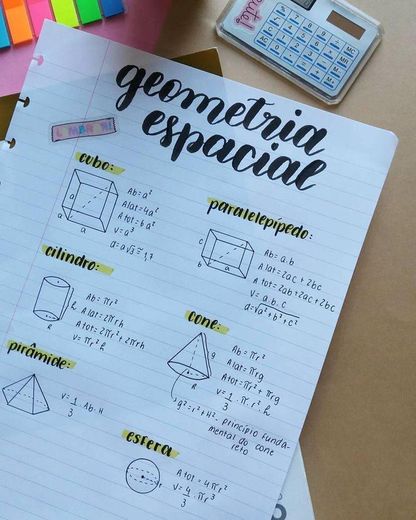 geometria
espacial
cubo:
a
a
a
Ab = a²
Alat = 4a²
Atot = 6a²
V = a³
d = a√3 ≅ 1,7
paralelepípedo:
c
b
a
Ab = a.b
Alat = 2ac + 2bc
Atot = 2ab + 2ac + 2bc
V = a.b.c
d = √a² + b² + c²
cilindro:
h
R
Ab = πr²
Alat = 2πrh
Atot = 2πr² + 2πrh
V = πr².h
cone:
g
R
Ab = πr²
Alat = πrg
Atot = πr² + πrg
V = 1/3 . πr².h
g² = r² + H² - princípio funda-
mental do cone
reto
pirâmide:
V = 1/3 Ab.H
esfera
r
Atot = 4πr²
V = 4/3 . πr³